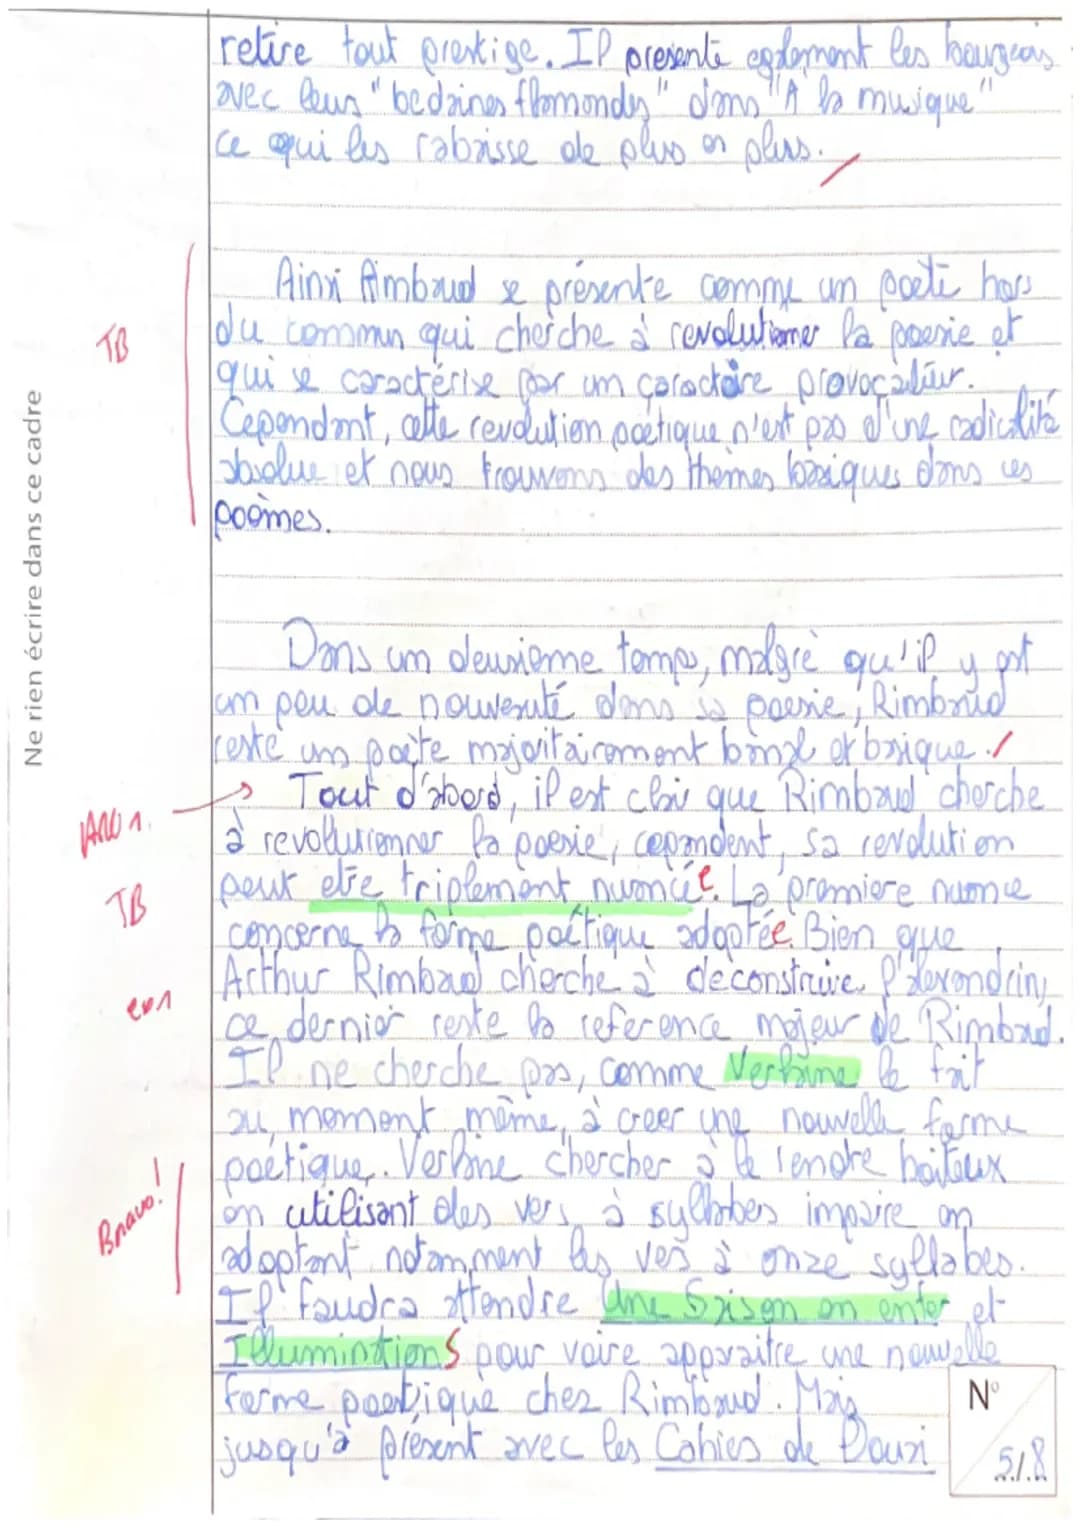 retire tout prestige. Il présente egalement les bourgeois
avec leurs "bedaines flamandes" dans "A la musique"
ce qui les rabaisse de plus en plus.
Ainsi Rimbaud se présente comme un poète hors
TB
du commun qui cherche à revolutionner la poesie et
qui se caractérise par un caractère provocateur.
Cependant, cette revolution poetique n'est pas d'une radicalité
absolue et nous trouvons des thèmes basiques dans ces
poèmes.
Ne rien écrire dans ce cadre
Dans un deuxieme temps, malgré qu'il y est
un peu de nouveauté dans sa poesie, Rimbaud
reste un poète majoritairement banal et basique.
Tout d'abord, il est clair que Rimbaud cherche
à revollutionner la poesie, cependent, sa revolution
TB
peut etre triplement nuancée. La premiere nuance
concerne la forme poétique adoptée. Bien que
Arthur Rimbaud cherche à deconstruire l'alexandrin,
ce dernier reste la reference majeur de Rimbaud.
Il ne cherche pas, comme Verlaine le fait
au moment même, à creer une nouvelle forme
poetique. Verlaine chercher à le rendre boiteux
Bravo!
en utilisant des vers à syllabes impaire en
adoptant notamment les vers à onze syllabes.
Il faudra attendre Une Saison en enfer et
Illuminations pour voire apparaitre une nouvelle
forme poetique chez Rimbaud. Mais
jusqu'à présent avec les Cahiers de Douai
N°
5/8